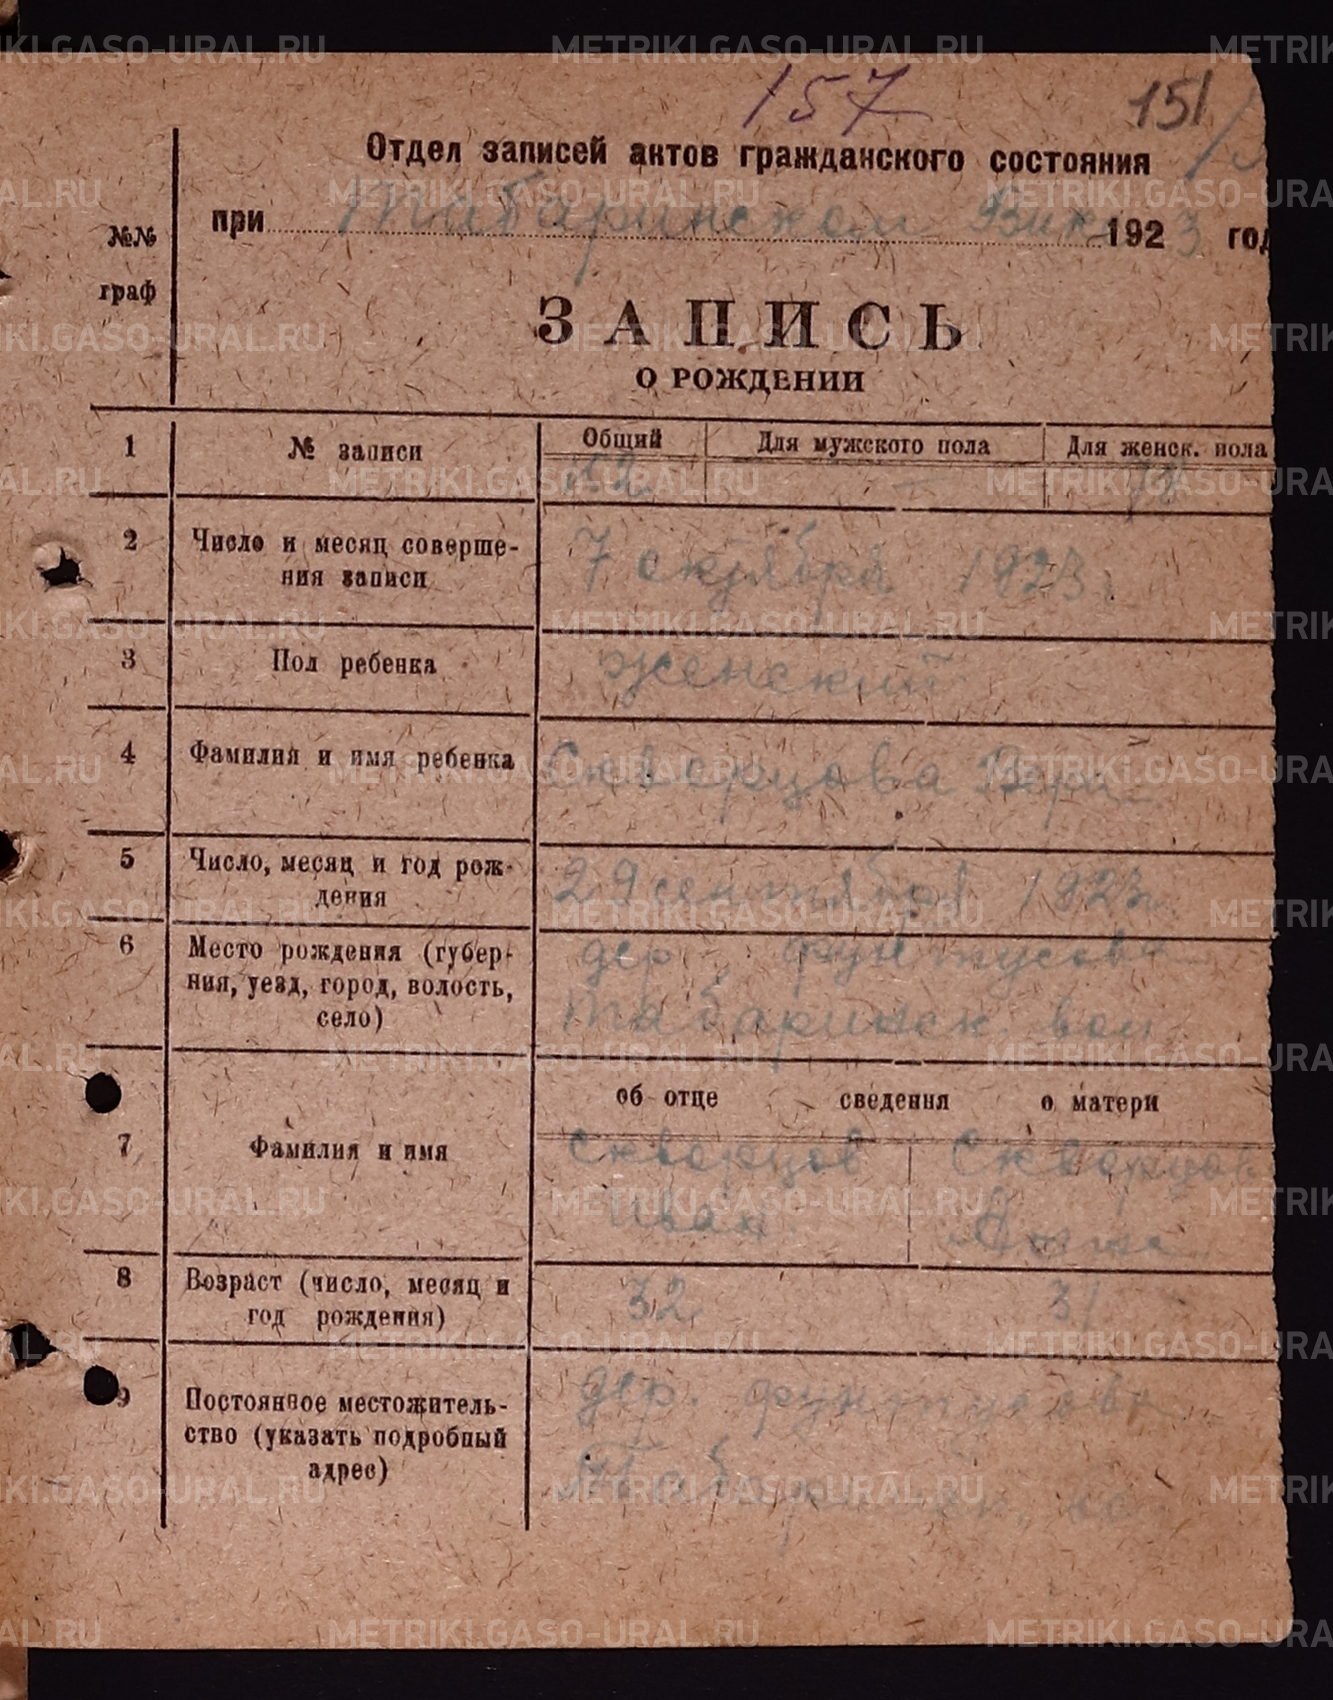 157
151
Отдел записей актов гражданского состояния
при Табаринском Вик 1923 год
№№
граф
ЗАПИСЬ
О РОЖДЕНИИ
1 № записи Общий Для мужского пола Для женск. пола
—
2 Число и месяц соверше-
ния записи
7 октября 1923 г.
3 Пол ребенка женский
4 Фамилия и имя ребенка Скворцова
5 Число, месяц и год рож-
дения
29 сентября 1923
6 Место рождения (губер-
ния, уезд, город, волость,
село)
дер. Фунтусова
Табаринск. вол
об отце сведения о матери
7 Фамилия и имя
Скворцов Скворцов
Иван.
8 Возраст (число, месяц и
год рождения)
32 31
9 Постоянное местожитель-
ство (указать подробный
адрес)
дер. Фунтусова
METRIKI.GASO-URAL.RU